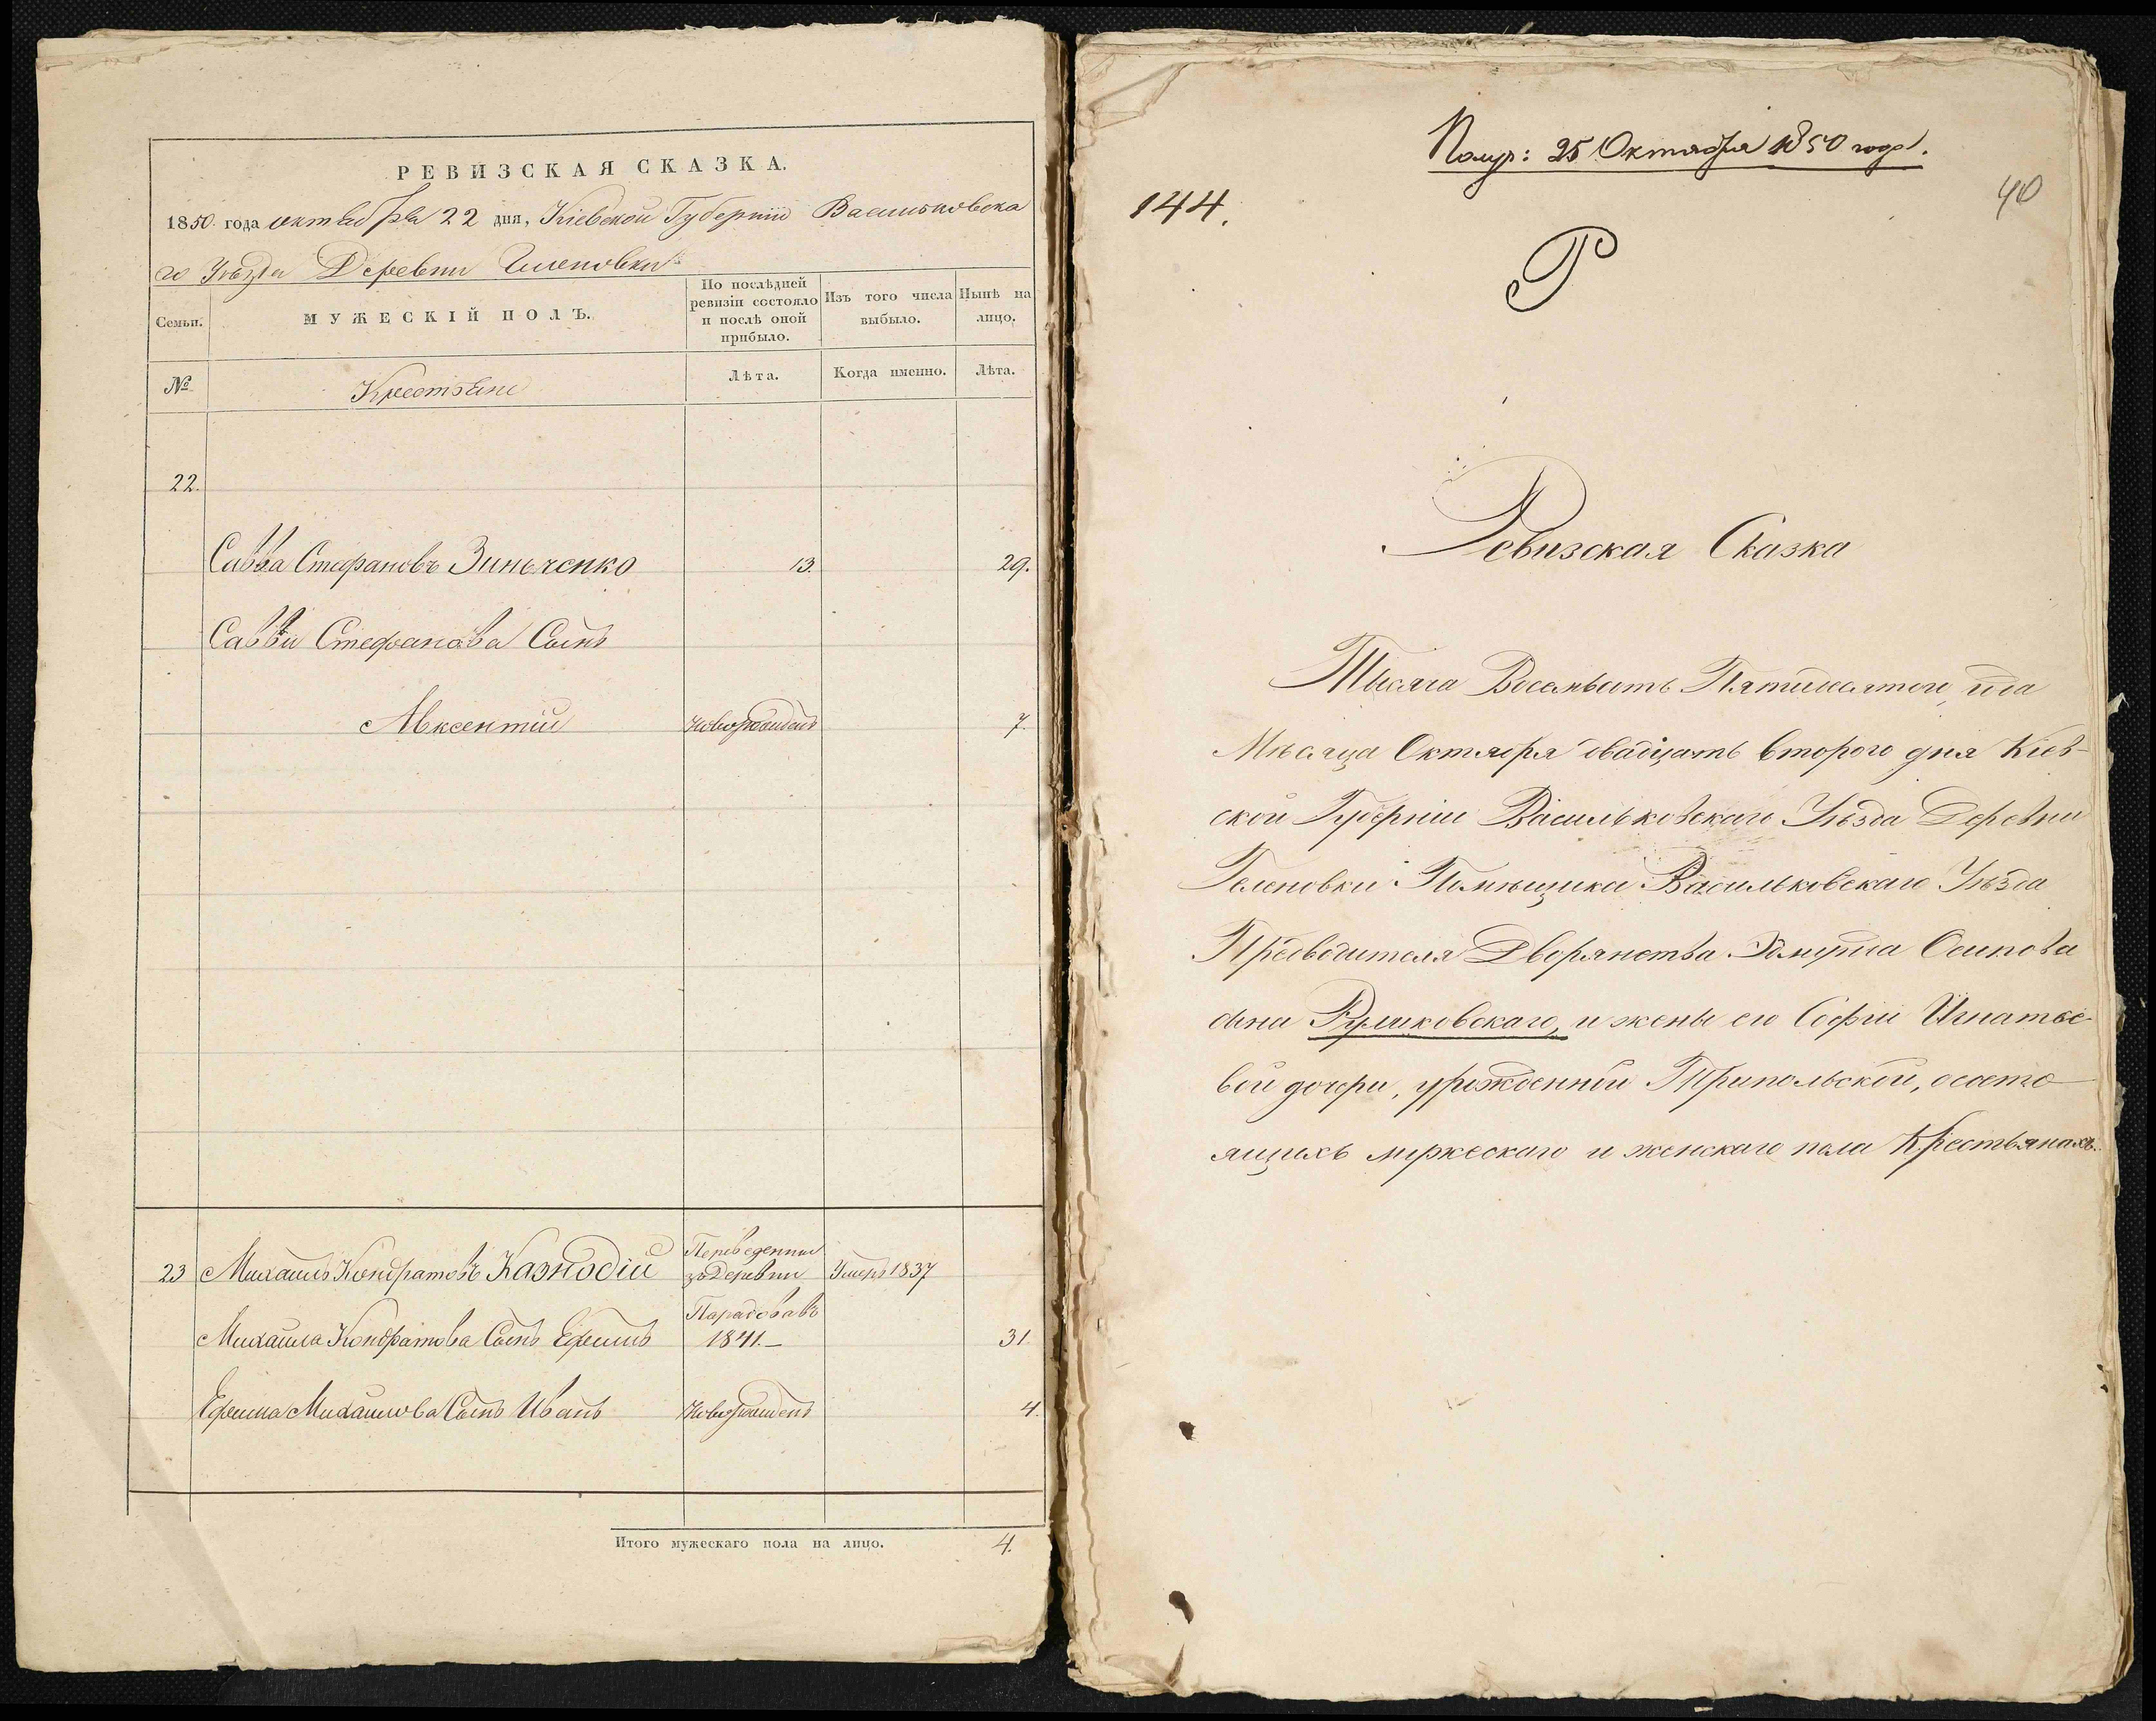 РЕВИЗСКАЯ СКАЗКА.
1850. года октября 22 дня, Кіевской Губерніи Васильковска
го Уезда Деревни
Семьи.
МУЖЕСКІЙ ПОЛЪ.
По послѣдней
ревизіи состояло
и послѣ оной
прибыло.
Изъ того числа
выбыло.
Нынѣ на
лицо.
№
Крестьяне
Лѣта.
Когда именно.
Лѣта.
22.
Савва Стефановъ Зинченко 13. 29.
Саввы Стефанова Сынъ
Авксентий новорожденъ 7.
23 Михаилъ Кондратовъ Казнодій Переведенны
зъ Деревни Умеръ 1837
Михаила Кондратова Сынъ Ефимъ 1841.— 31.
Ефима Михайлова Сынъ Иванъ Новорожденъ 4.
Итого мужескаго пола на лицо. 4.
Получ: 25 Октября 1850 года.
144.
40
Р
Ревизская Сказка
Тысяча Восемьсотъ Пятидесятого года
Мѣсяца Октября двадцать второго дня Кіев-
ской Губерніи Васильковскаго Уѣзда Деревни
Геленовки Помѣщика Васильковскаго Уѣзда
Предводителя Дворянства Эдмунда Осипова
сына Руликовскаго, и жены его Софіи Игнатье-
вой дочери, урожденной Трипольской, о состо-
ящихъ мужескаго и женскаго пола Крестьянахъ.